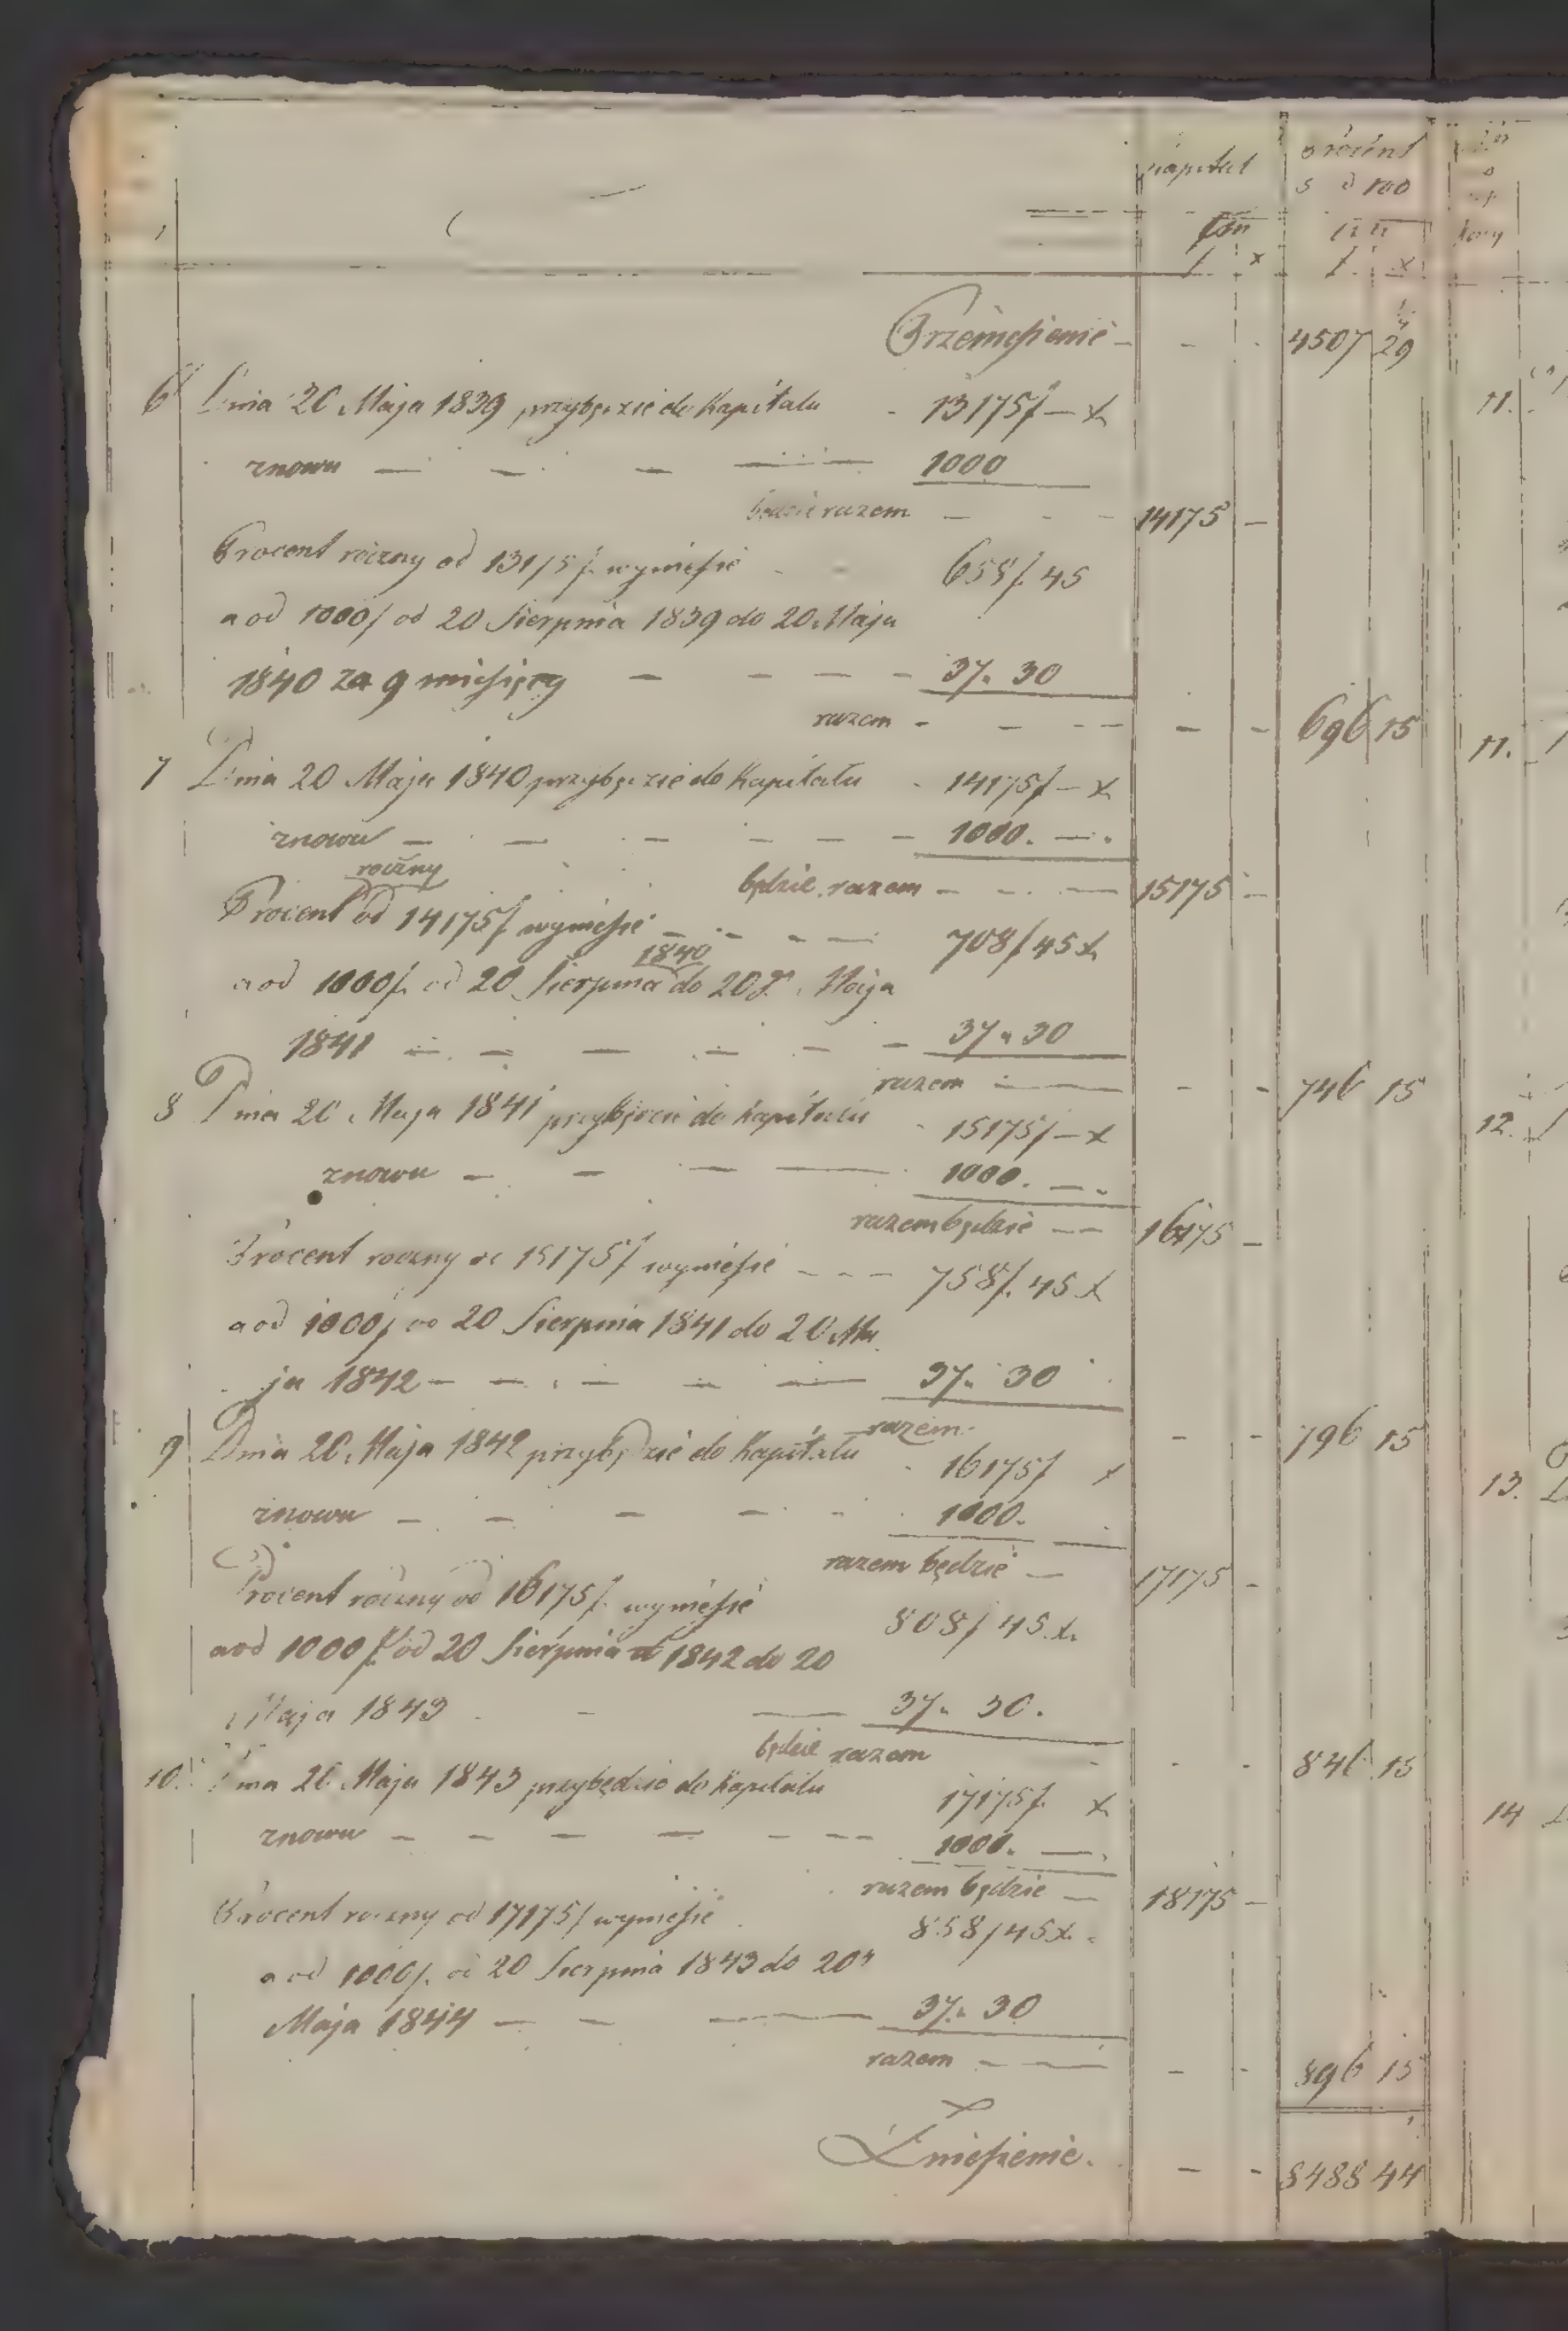 Kapitał procent
5 od 100
Cm
f x f x
Przeniesienie - - - 4507 29
6 Dnia 20 Maja 1839 przybędzie do Kapitału - 13175 f - x
znowu - - - - 1000
będzie razem - - - 14175 -
Procent roczny od 13175 f. wyniesie - - 658 f. 45
a od 1000 f od 20 Sierpnia 1839 do 20 Maja
1840 za 9 miesięcy - - - - 37. 30
razem - - - - - 696 15
7 Dnia 20 Maja 1840 przybędzie do Kapitału - 14175 f - x
znowu - - - - - - 1000. -
będzie razem - - - 15175 -
roczny
Procent od 14175 f wyniesie - - - - 708 f 45 x
1840
a od 1000 f. od 20 Sierpnia do 20 Maja
1841 - - - - - - 37 " 30
razem - - - - 746 15
8 Dnia 20 Maja 1841 przybędzie do Kapitału - 15175 f - x
znowu - - - - 1000. -
razem będzie - - 16175 -
Procent roczny od 15175 f wyniesie - - - 758 f. 45 x
a od 1000 f od 20 Sierpnia 1841 do 20 Ma
ja 1842 - - - - - 37. 30
razem. - - 796 15
9 Dnia 20 Maja 1842 przybędzie do Kapitału - 16175 f x
znowu - - - - - 1000.
razem będzie - 17175 -
Procent roczny od 16175 f. wyniesie 808 f 45 x.
a od 1000 f. od 20 Sierpnia 1842 do 20
Maja 1843 - - - 37. 30.
będzie razem - - - 846 15
10. Dnia 20 Maja 1843 przybędzie do Kapitału 17175 f. x
znowu - - - - - - 1000. -
razem będzie - 18175 -
Procent roczny od 17175 f wyniesie 858 f 45 x.
a od 1000 f. od 20 Sierpnia 1843 do 20
Maja 1844 - - - 37. 30
razem - - - - 896 15
Zniesienie. - - 8488 44
11.
11.
12.
13.
14